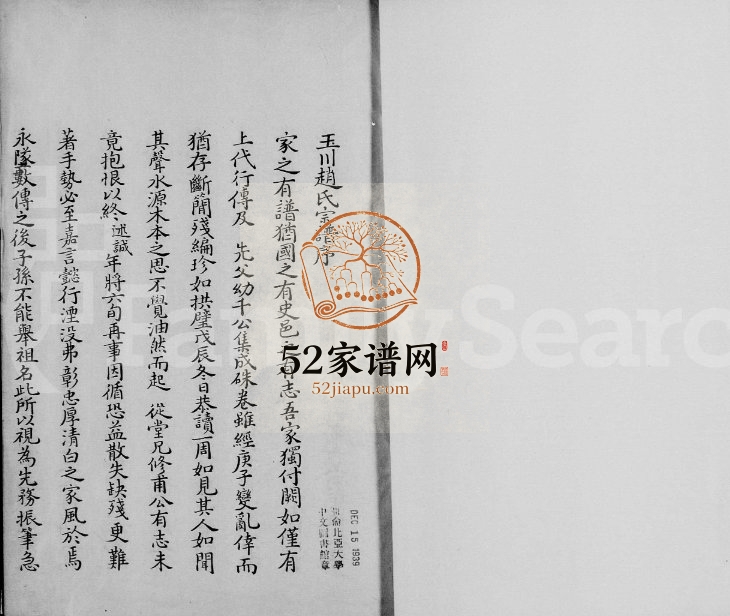 玉川趙氏宗譜序
家之有譜猶國之有史邑之有志吾家獨付闕如僅有
上代行傳及 先父幼千公集成硃卷雖經庚子變亂倖而
猶存斷簡殘編珍如拱璧戊辰冬日恭讀一周如見其人如聞
其聲水源木本之思不覺油然而起 從堂兄修甫公有志未
竟抱恨以終述誠年將六旬再事因循恐益散失缺殘更難
著手勢必至嘉言懿行湮没弗彰忠厚清白之家風於焉
永墜數傳之後子孫不能舉祖名此所以視為先務振筆急
DEC 15 1939
哥倫比亞大學
中文圖書館章
52家谱网
52jiapu.com
FamilySearc